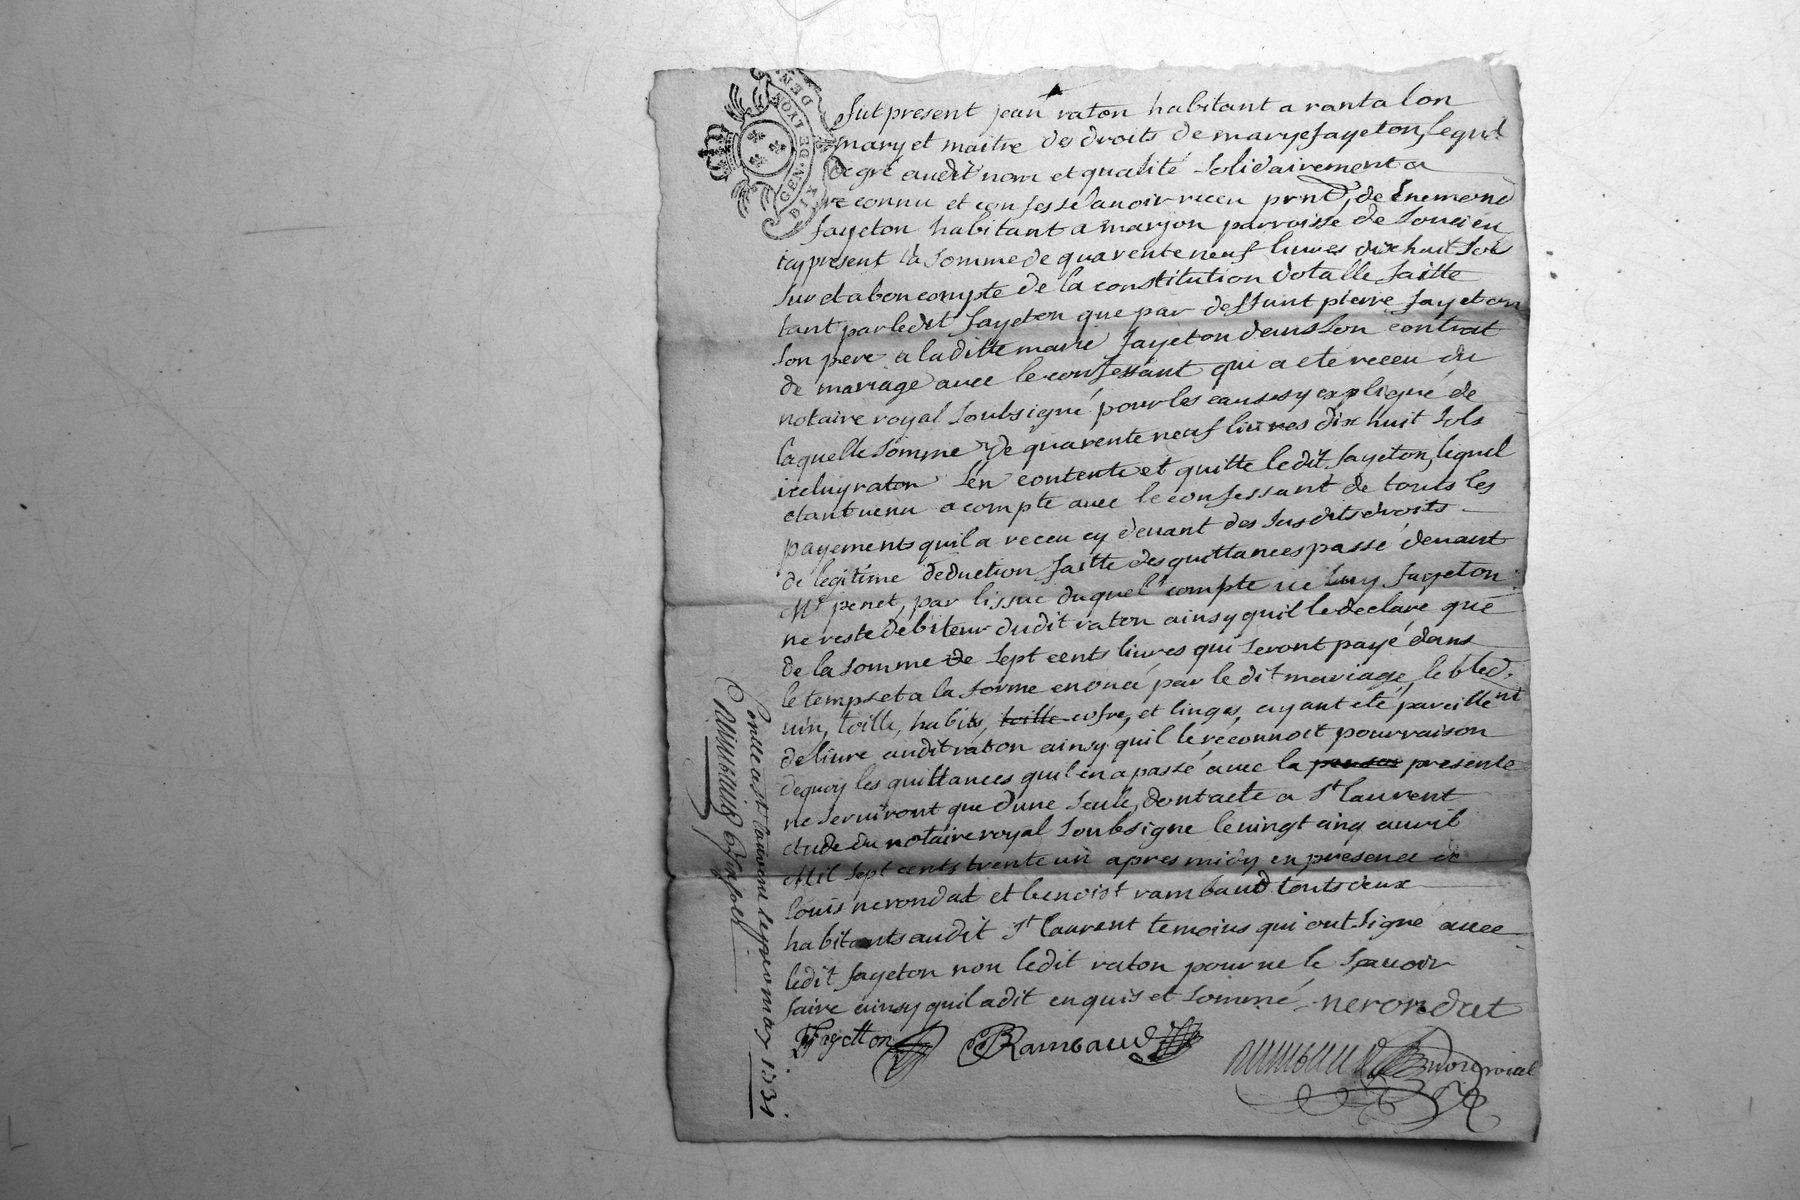 GEN. DE LYON
DEN
DIX
fut present jean raton habitant a rantalon
mary et maitre des droits de marye fayeton, lequel
de gré audit nom et qualité solidairement a
reconnu et confessé avoir receu prnt, de Enemond
fayeton habitant a marjon parroisse de soucieu
icy present la somme de quarente neuf livres dix huit sols
sur et a bon compte de la constitution dotalle faitte
tant par ledit fayeton que par deffunt pierre fayeton
son pere a laditte marie fayeton dans son contrat
de mariage avec le confessant qui a eté receu du
notaire royal soubsigné pour les causes y expliqué de
laquelle somme de quarente neuf livres dix huit sols
iceluy raton s'en contente et quitte ledit fayeton, lequel
etant venu a compte avec le confessant de touts les
payements qu'il a receu cy devant des susdits droits
de legitime deduction faitte des quittances passé devant
Me penet, par l'issue duquel compte ice luy fayeton
ne reste debiteur dudit raton ainsy qu'il le declare que
de la somme de sept cents livres qui seront payé dans
le temps et a la forme enoncé par le dit mariage, le bled,
vin, toille, habits, toille cofre, et linges, ayant eté pareillement
delivre audit raton ainsy qu'il le reconnoit pour raison
dequoy les quittances qu'il en a passé avec la presente
ne serviront que d'une seule, dont acte a st laurent
etude du notaire royal soubsigne le vingt cinq avril
Mil sept cents trente un apres midy en presence de
louis nerondat et benoist rambaud touts deux
habitants audit st laurent temoins qui ont signé avec
ledit fayeton non ledit raton pour ne le sçavoir
faire ainsy qu'il a dit enquis et sommé nerondat
fayetton Rambaud
rambaud no.re roial
Conlle a st laurent le premier may 1731